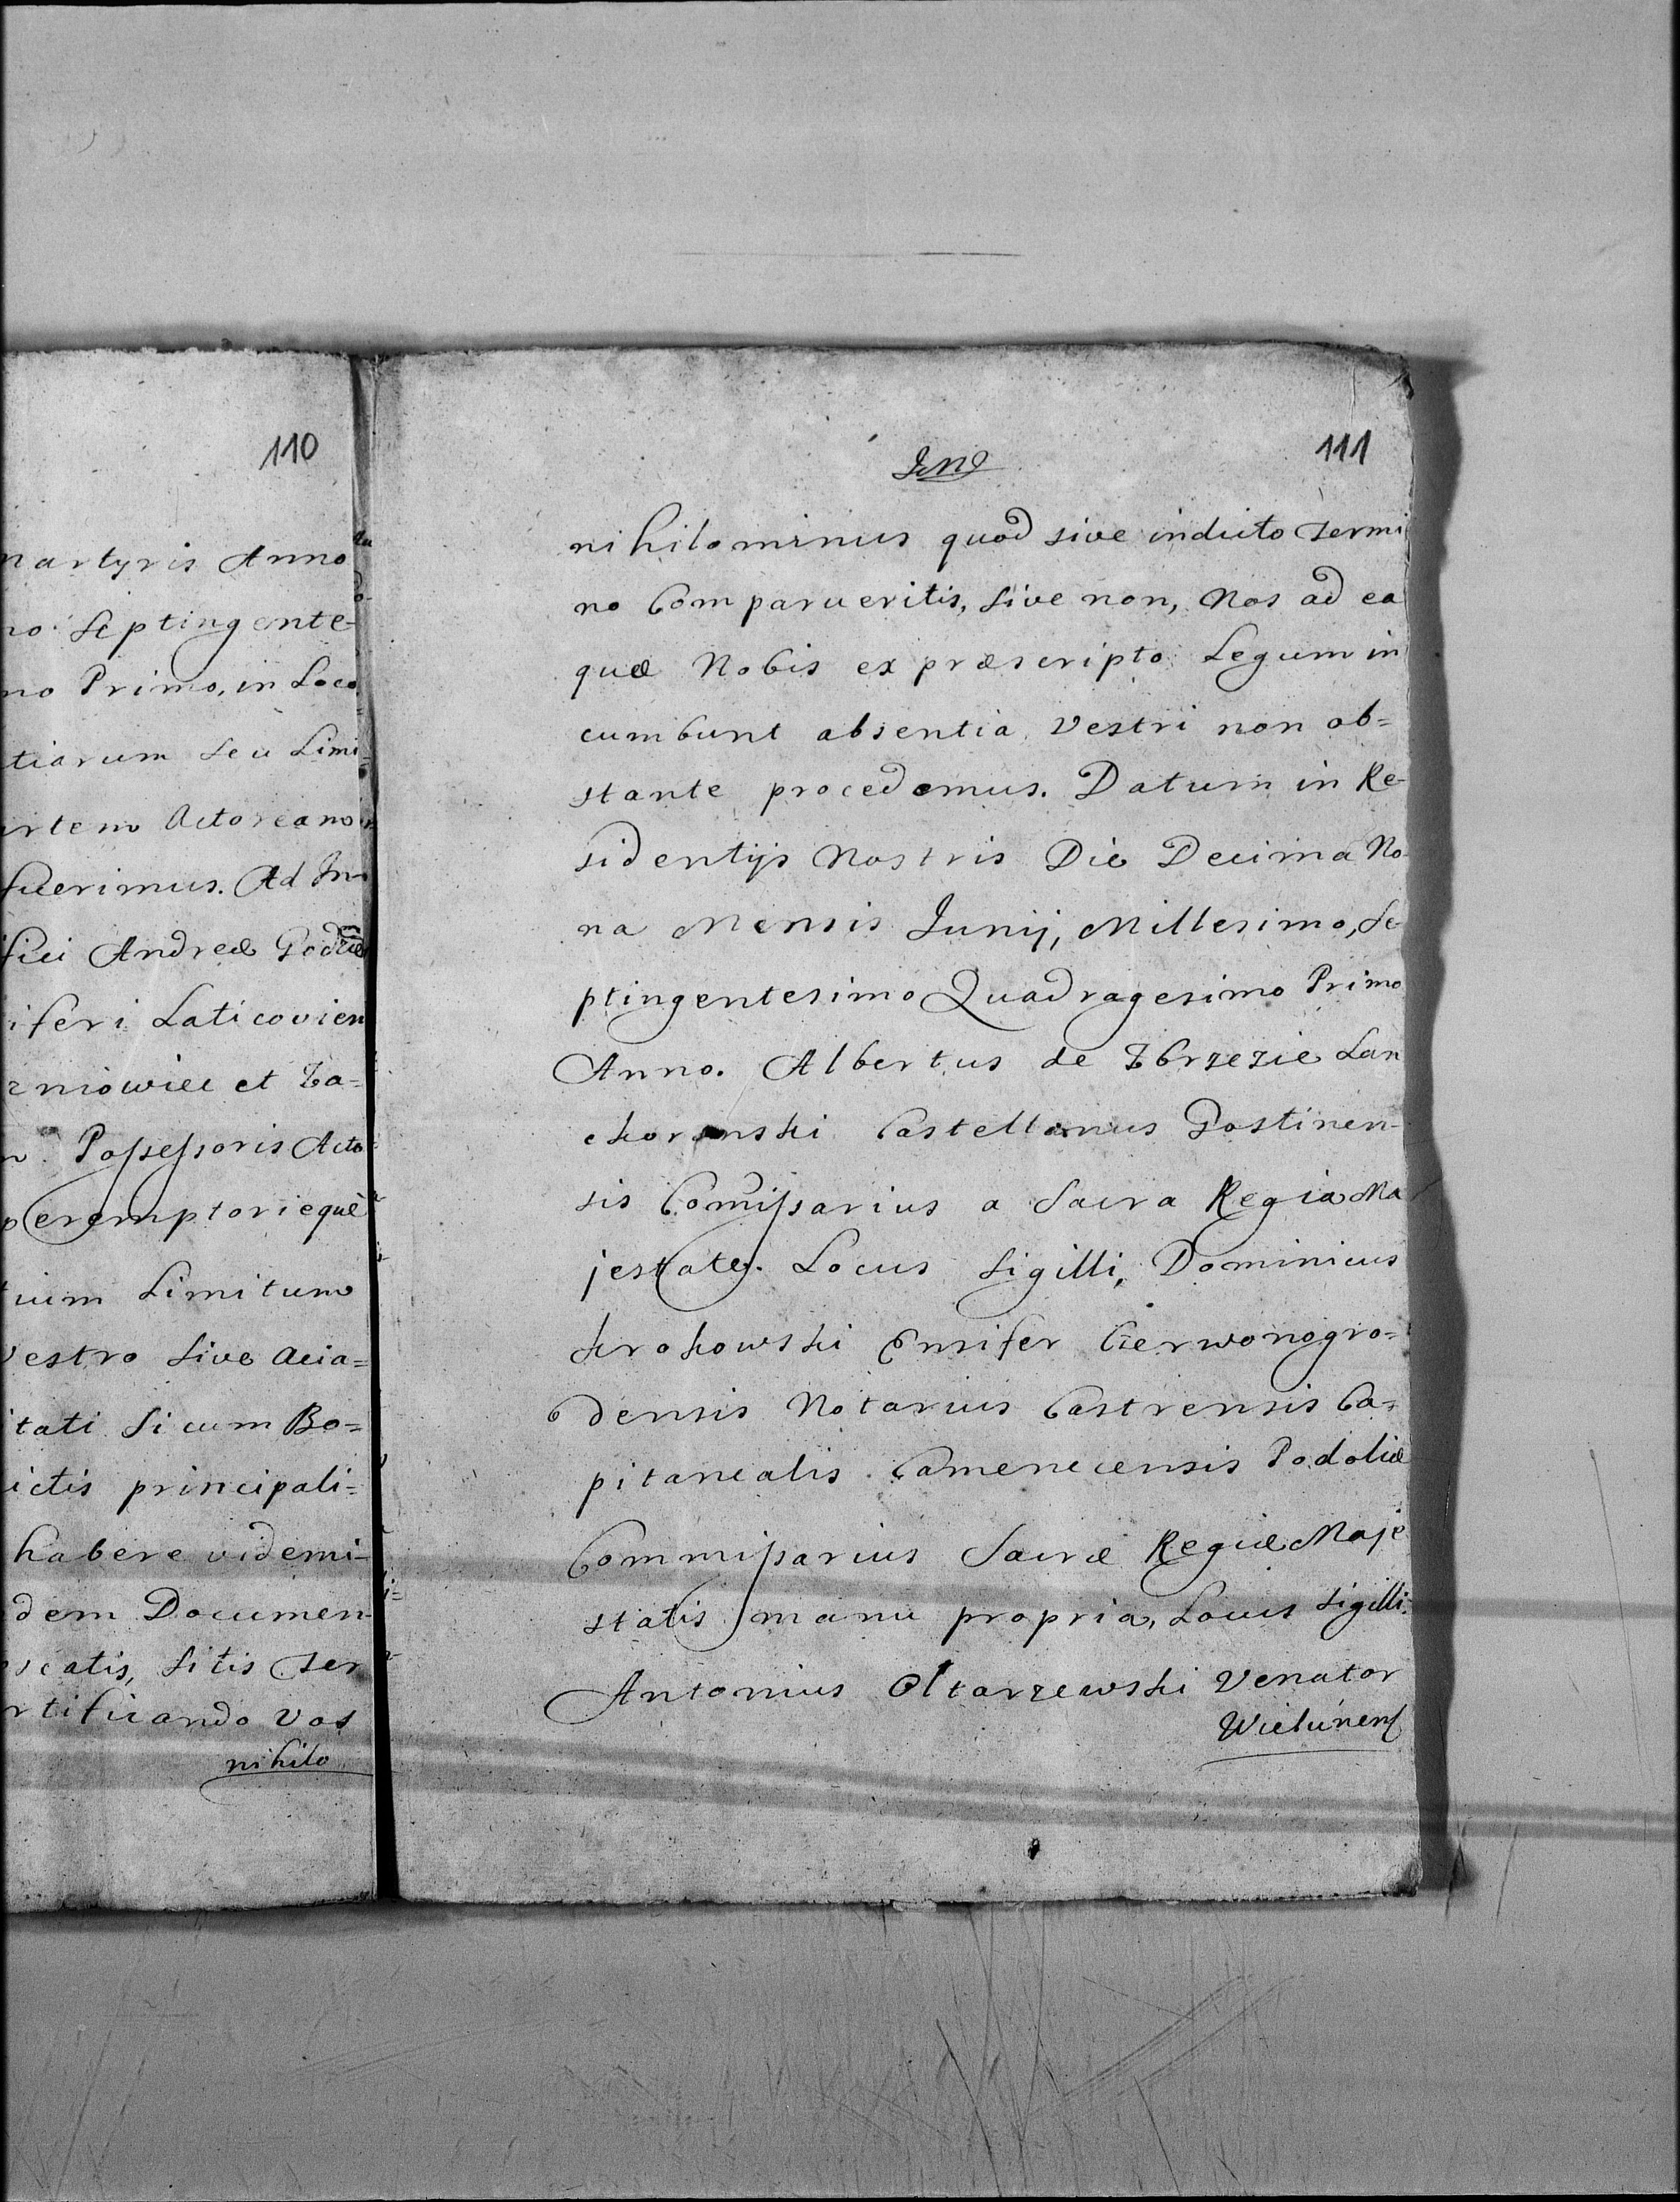 110
martyris Anno
no Septingente-
mo Primo, in Loco
tiarum seu Limi
rtem Actoream
fuerimus. Ad In-
fici Andreæ
iferi Laticovien
zniowiec et Za=
Possessoris Acto
peremptorieque
tium Limitum
Vestro sive Acia=
itati si cum Bo=
ictis principali=
habere videmi-
dem Documen-
scatis, sitis ter
rtificando vos
nihilo
111
nihilominus quod sive induto termi
no Comparueritis, sive non, Nos ad ea
quæ Nobis ex præscripto Legum in
cumbunt absentia Vestri non ob=
stante procedemus. Datum in Re-
sidentijs Nostris Die Decima No-
na Mensis Junij, Millesimo, Se
ptingentesimo Quadragesimo Primo
Anno. Albertus de Zbrzezie Lan
ckoronski Castellanus Gostinen-
sis Comissarius a Sacra Regia Ma
jestate. Locus Sigilli, Dominicus
Krokowski Ensifer Czerwonogro=
densis Notarius Castrensis Ca=
pitanealis Camenecensis Podoliæ
Commissarius Sacræ Regiæ Maje
statis manu propria, Locus Sigilli.
Antonius Ołtarzewski Venator
Wielunens